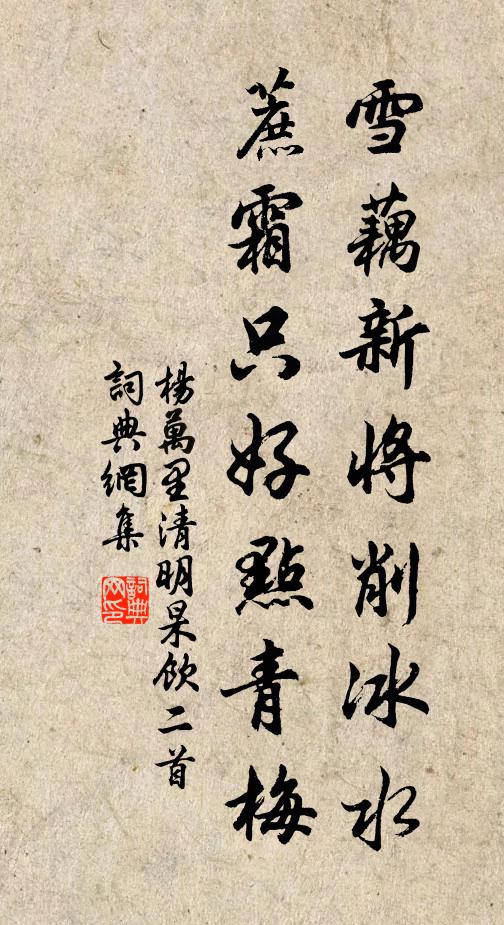 雪藕新將削冰水
蔗霜只好點青梅
楊萬里清明杲飲二首
詞典網集
詞典網印